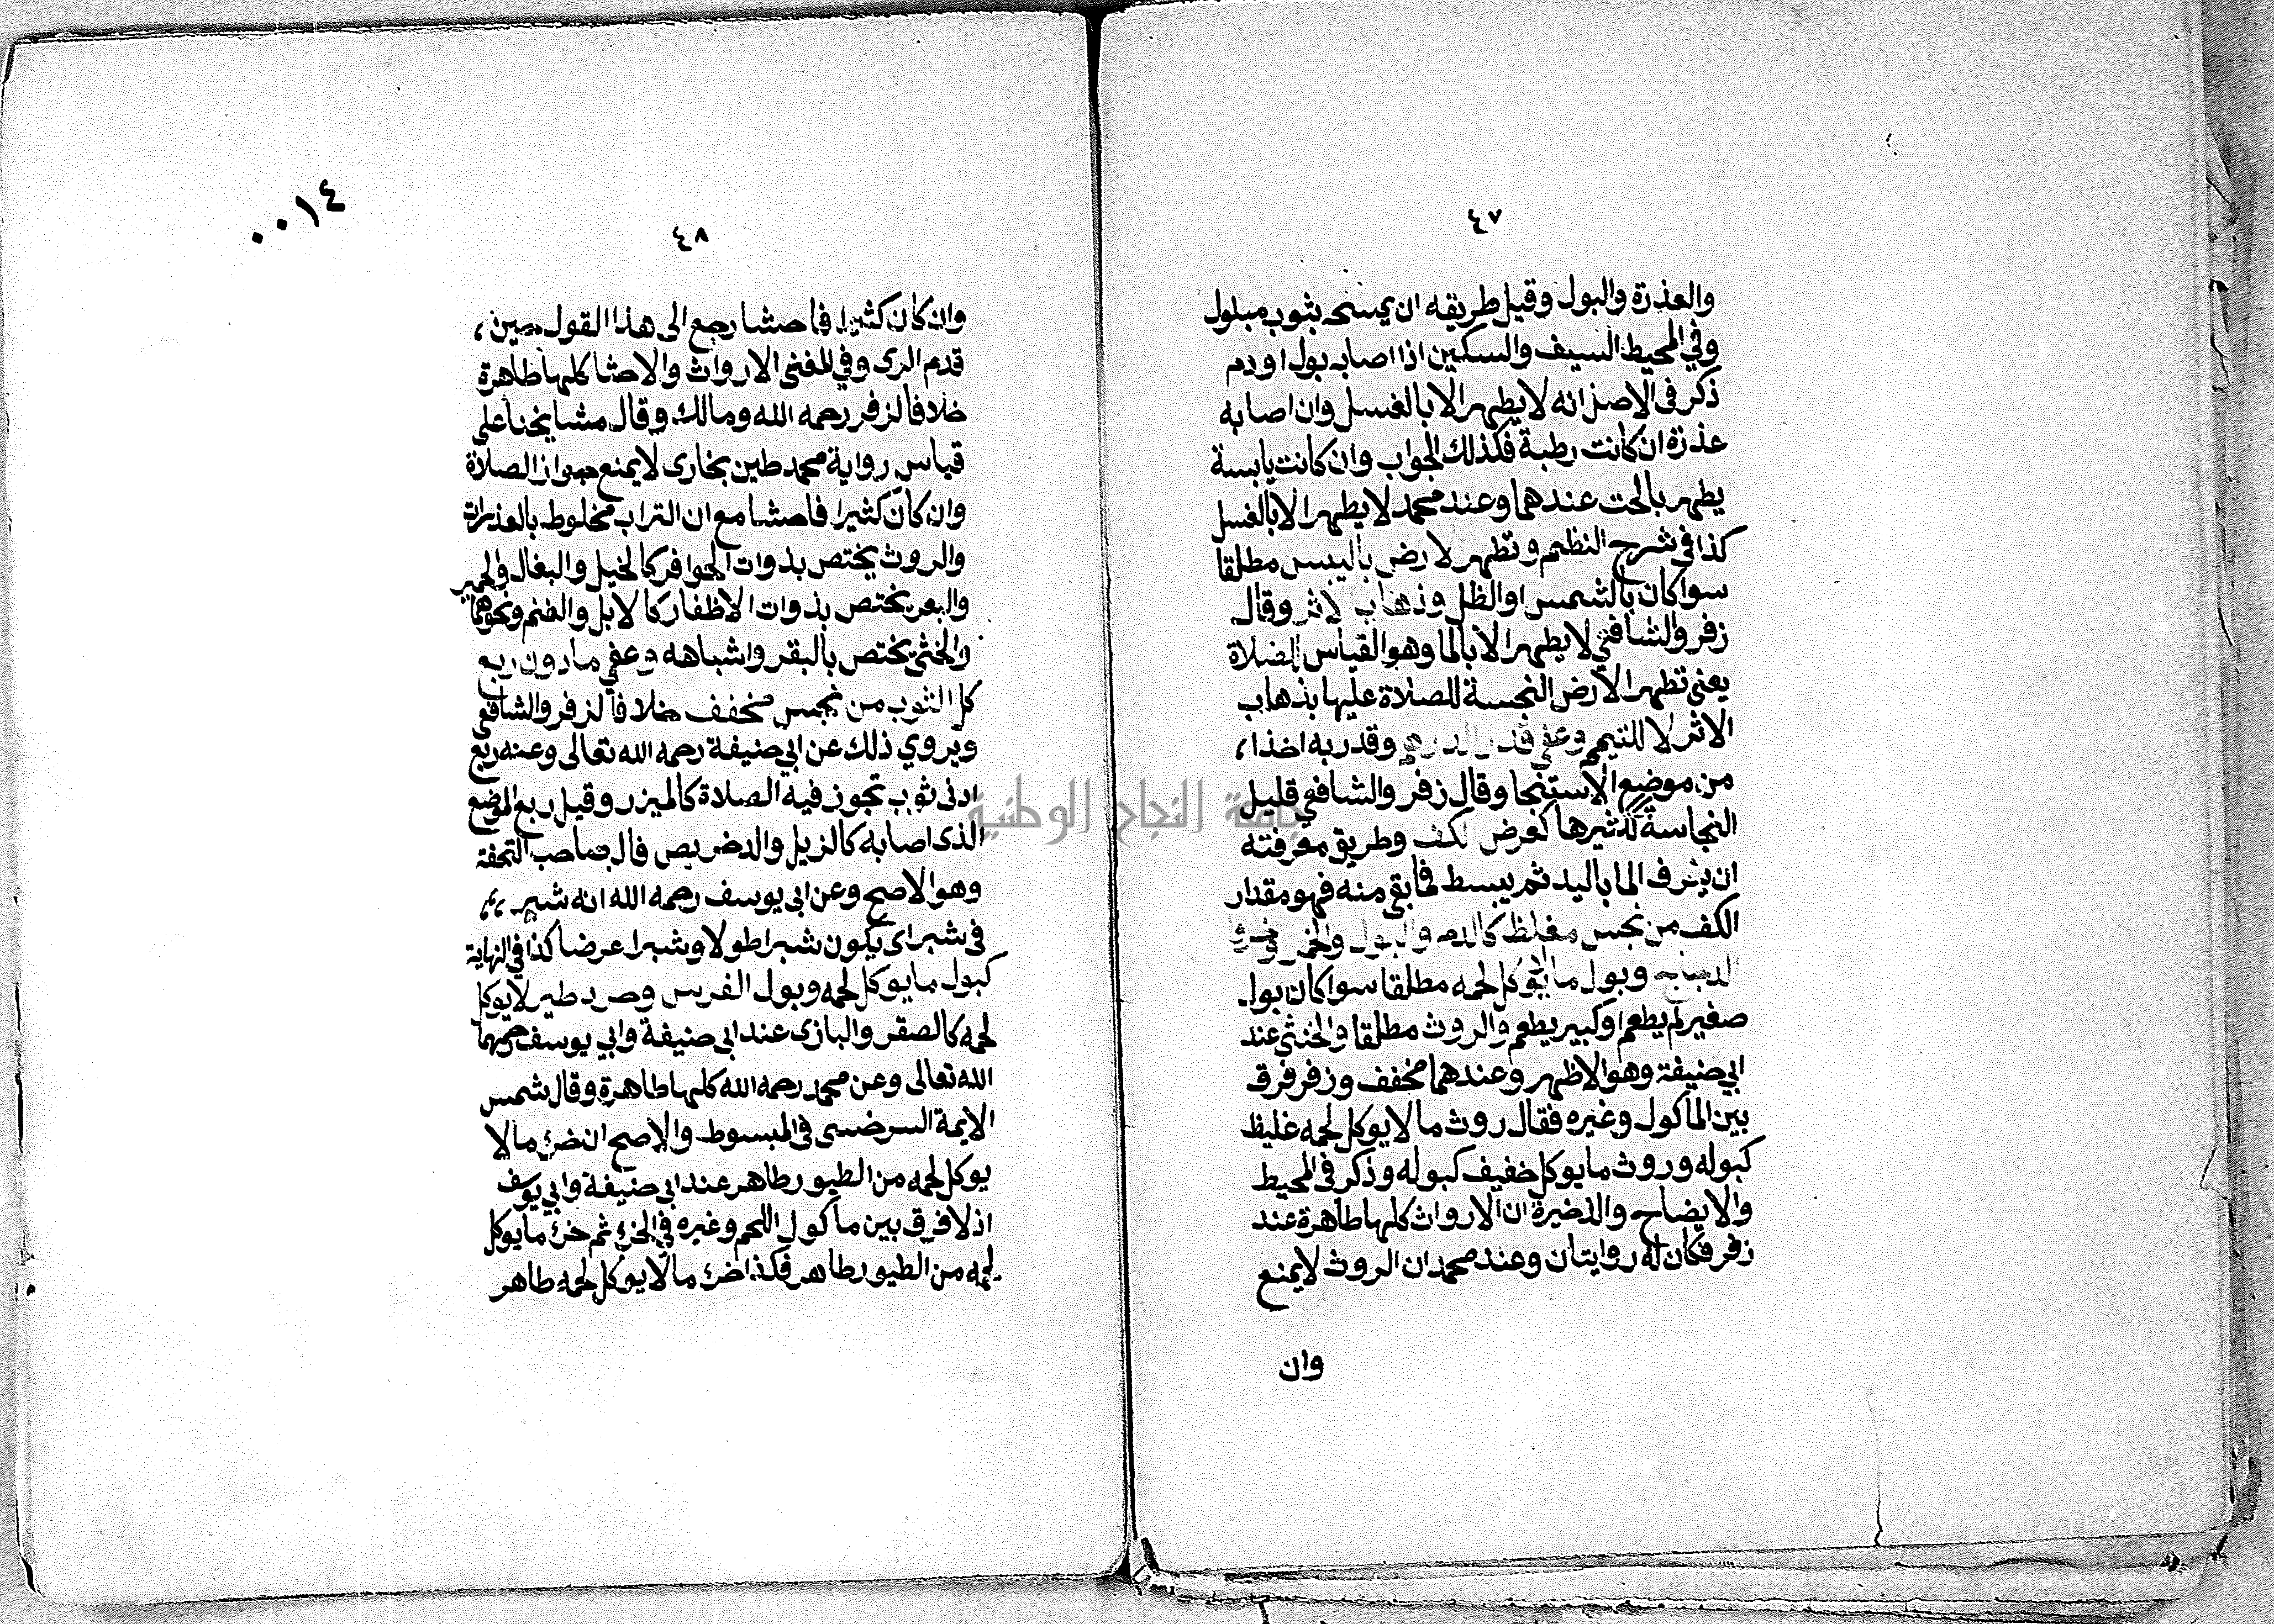 ٤٧
والعذرة والبول وقيل طريقه ان يمسحه بثوب مبلول
وفي المحيط السيف والسكين اذا اصابه بول او دم
ذكر فى الاصل انه لا يطهر الا بالغسل وان اصابه
عذرة ان كانت رطبة فكذلك الجواب وان كانت يابسة
يطهر بالحت عندهما وعند محمد لا يطهر الا بالغسل
كذا فى شرح النظم وتطهر لارض باليبس مطلقا
سوا كان بالشمس او الظل وذهاب لاثر وقال
زفر والشافعي لا يطهر الا بالما وهو القياس للصلاة
يعنى تطهر الارض النجسة للصلاة عليها بذهاب
الاثر لا للتيمم وعفي قدر الدرهم وقدر به اخذا،
من موضع الاستنجا وقال زفر والشافعي قليل
النجاسة ككثيرها كعرض لكف وطريق معرفته
ان يغرف الما باليد ثم يبسط فما بقي منه فهو مقدار
الكف من نجس مغلظ كالدم والبول والخمر وخرئ
الدجاج وبول ما لا يوكل لحمه مطلقا سوا كان بول
صغير لم يطعم او كبير يطعم والروث مطلقا والخثي عند
ابي حنيفة وهو الاظهر وعندهما مخفف وزفر فرق
بين الماكول وغيره فقال روث ما لا يوكل لحمه غليظ
كبوله وروث ما يوكل خفيف كبوله وذكر فى المحيط
والايضاح والذخيرة ان الارواث كلها طاهرة عند
زفر فكان له روايتان وعند محمد ان الروث لا يمنع
وان
٠٠١٤
٤٨
وان كان كثيرا فاحشا رجع الى هذا القول حين،
قدم الرى وفي المغنى الارواث والاحثا كلها طاهرة
خلافا لزفر رحمه الله ومالك وقال مشايخنا على
قياس رواية محمد طين بخارى لا يمنع جواز الصلاة
وان كان كثيرا فاحشا مع ان التراب مخلوط بالعذرات
والروث يختص بذوات الحوافر كالخيل والبغال والحمير
والبعر يختص بذوات الاظفار كالابل والغنم ونحوهما
والخثي يختص بالبقر واشباهه وعفي ما دون ربع
كل الثوب من نجس مخفف خلافا لزفر والشافعي
ويروي ذلك عن ابي حنيفة رحمه الله تعالى وعنه ربع
ادنى ثوب تجوز فيه الصلاة كالميزر وقيل ربع الموضع
الذى اصابه كالزيل والدخريص قال صاحب التحفة
وهو الاصح وعن ابى يوسف رحمه الله انه شبر،،
فى شبر اى يكون شبرا طولا وشبرا عرضا كذا في النهاية
كبول ما يوكل لحمه وبول الفرس وخرء طير لا يوكل
لحمه كالصقر والبازى عند ابى حنيفة وابي يوسف رحمهما
الله تعالى وعن محمد رحمه الله كلها طاهرة وقال شمس
الايمة السرخسى في المبسوط والاصح ان خرئ ما لا
يوكل لحمه من الطيور طاهر عند ابى حنيفة وابي يوسف
اذ لا فرق بين ماكول اللحم وغيره في الخرئ ثم خرئ ما يوكل
لحمه من الطيور طاهر فكذا خرئ ما لا يوكل لحمه طاهر
جامعة النجاح الوطنية